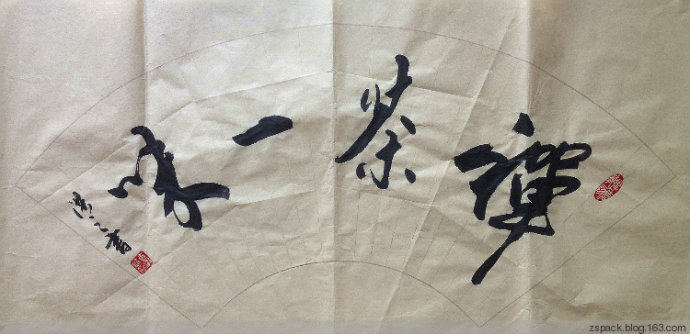 禪茶一味
zspack.blog.163.com